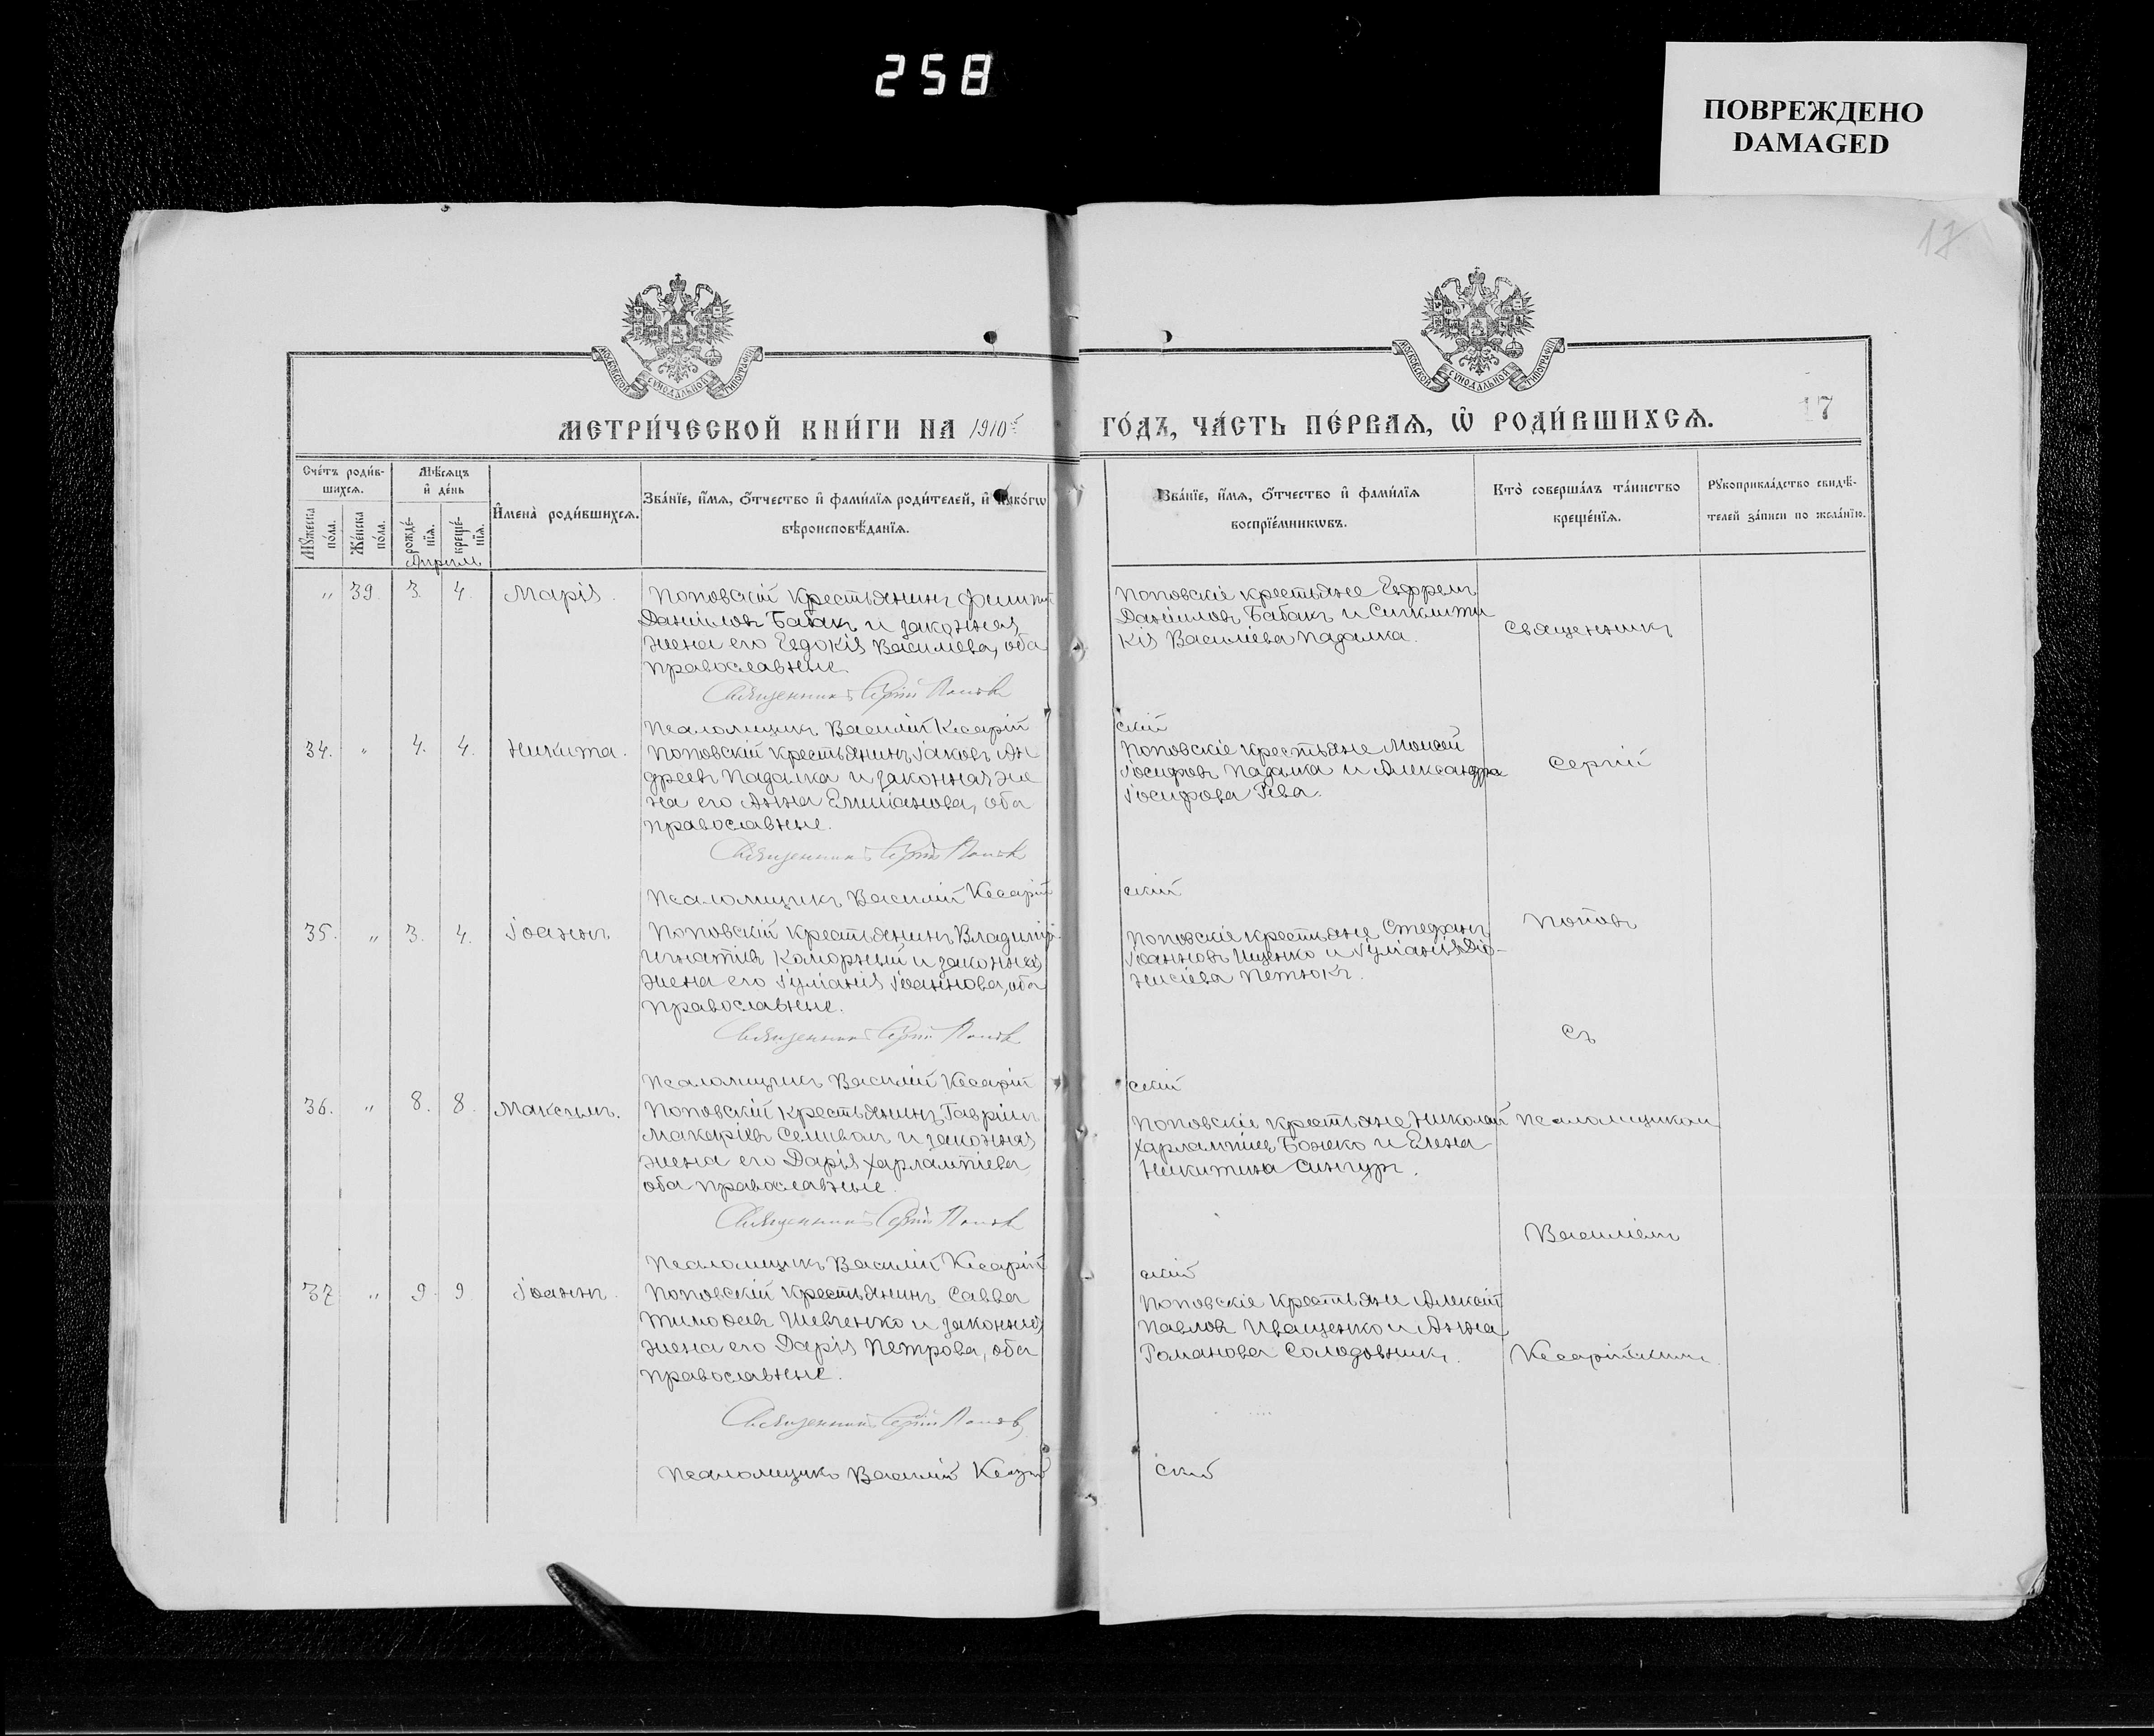 258
ПОВРЕЖДЕНО
DAMAGED
17
МОСКОВСКОЙ СѴНОДАЛЬНОЙ ТИПОГРАФІИ
МОСКОВСКОЙ СѴНОДАЛЬНОЙ ТИПОГРАФІИ
МЕТРИ́ЧЕСКОЙ КНИ́ГИ НА 1910й
ГО́ДЪ, ЧА́СТЬ ПЕ́РВАѦ, Ѡ҆ РОДИ́ВШИХСѦ.
17
Сче́тъ роди́в-
шихсѧ.
Мѣ́сѧцъ
и҆ де́нь
Мꙋ́жеска
по́ла.
Же́нска
по́ла.
рожде́-
нїѧ.
креще́-
нїѧ.
И҆мена̀ роди́вшихсѧ.
Зва́нїе, и҆́мѧ, ѻ҆́тчество и҆ фами́лїѧ роди́телей, и҆ како́гѡ
вѣроисповѣ́данїѧ.
Зва́нїе, и҆́мѧ, ѻ҆́тчество и҆ фами́лїѧ
воспрїе́мникѡвъ.
Кто̀ соверша́лъ та́инство
креще́нїѧ.
Рꙋкоприкла́дство свидѣ́-
телей за́писи по жела́нїю.
Апрѣль
„ 39. 3. 4. Марія.
Поповскій крестьянинъ Филиппъ
Даніиловъ Бабакъ и законная
жена его Евдокія Василиева, оба
православные.
Священникъ Сергій Поповъ
Псаломщикъ Василій Кесарій
Поповскіе крестьяне Ефремъ
Даніиловъ Бабакъ и Синклити
кія Василіева Падалка.
ский
Священникъ
34. „ 4. 4. Никита.
Поповскій крестьянинъ Іаковъ Ан
дреевъ Падалка и законная же
на его Анна Епифанова, оба
православные.
Священникъ Сергій Поповъ
Псаломщикъ Василій Кесарій
Поповскіе крестьяне Моисей
Іосифовъ Падалка и Александра
Іосифова Рева.
скій
Сергій
35. „ 3. 4. Іоаннъ
Поповскій крестьянинъ Владиміръ
Игнатіевъ Коморный и законная
жена его Іуліанія Іоаннова, оба
православные.
Священникъ Сергій Поповъ
Псаломщикъ Василій Кесарій
Поповскіе крестьяне Стефанъ
Іоанновъ Ищенко и Іуліанія Діо-
нисіева Петюкъ.
скій
Поповъ
съ
36. „ 8. 8. Максимъ.
Поповскій крестьянинъ Гавріилъ
Макаріевъ Селиванъ и законная
жена его Дарія Харлампіева
оба православные.
Священникъ Сергій Поповъ
Псаломщикъ Василій Кесарій
Поповскіе крестьяне Николай
Харлампіевъ Божко и Елена
Никитина Сингуръ.
скій
псаломщикомъ
Василіемъ
37 „ 9. 9 Іоаннъ.
Поповскій крестьянинъ Савва
Тимофеевъ Шевченко и законная
жена его Дарія Петрова, оба
православные.
Священникъ Сергій Поповъ
Псаломщикъ Василій Кесарій
Поповскіе крестьяне Алексѣй
Павловъ Иващенко и Анна
Романова Солодовникъ.
скій
Кесарійскимъ.